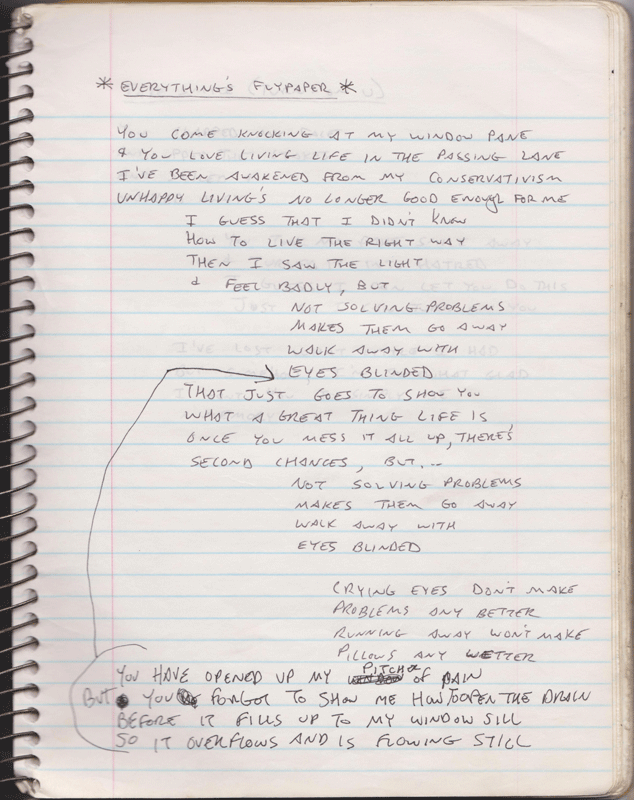 * EVERYTHING'S FLYPAPER *
YOU COME KNOCKING AT MY WINDOW PANE
& YOU LOVE LIVING LIFE IN THE PASSING LANE
I'VE BEEN AWAKENED FROM MY CONSERVATIVISM
UNHAPPY LIVING'S NO LONGER GOOD ENOUGH FOR ME
I GUESS THAT I DIDN'T KNOW
HOW TO LIVE THE RIGHT WAY
THEN I SAW THE LIGHT
& FEEL BADLY, BUT
NOT SOLVING PROBLEMS
MAKES THEM GO AWAY
WALK AWAY WITH
EYES BLINDED
THAT JUST GOES TO SHOW YOU
WHAT A GREAT THING LIFE IS
ONCE YOU MESS IT ALL UP, THERE'S
SECOND CHANCES, BUT...
NOT SOLVING PROBLEMS
MAKES THEM GO AWAY
WALK AWAY WITH
EYES BLINDED
CRYING EYES DON'T MAKE
PROBLEMS ANY BETTER
RUNNING AWAY WON'T MAKE
PILLOWS ANY WETTER
YOU HAVE OPENED UP MY PITCHER OF PAIN
BUT YOU FORGOT TO SHOW ME HOW TO OPEN THE DRAIN
BEFORE IT FILLS UP TO MY WINDOW SILL
SO IT OVERFLOWS AND IS FLOWING STILL